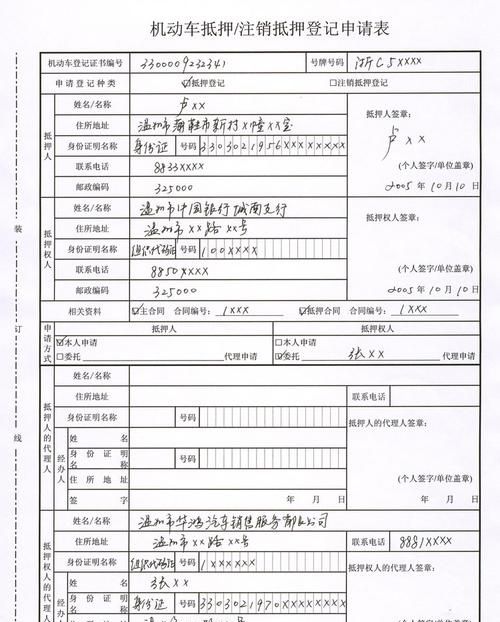 机动车抵押/注销抵押登记申请表
机动车登记证书编号 3300009232341 号牌号码 浙C5XXXX
申请登记种类 ☑抵押登记 □注销抵押登记
抵押人 姓名/名称 卢XX 抵押人签章:
住所地址 温州市 新村X幢XX室
身份证明名称 身份证 号码 3303021956XXXXXXXX 卢XX
联系电话 8833XXXX (个人签字/单位盖章)
邮政编码 325000 2005年10月10日
抵押权人 姓名/名称 温州市中国银行城南支行 抵押权人签章:
住所地址 温州市XX路XX号
身份证明名称 组织代码证 号码 100XXXXX
联系电话 8850XXXX (个人签字/单位盖章)
邮政编码 325000 2005年10月10日
相关资料 ☑主合同 合同编号: 1XXX ☑抵押合同 合同编号: 1XXX
申请方式 抵押人 抵押权人
☑本人申请 □本人申请
□委托 代理申请 ☑委托 张XX 代理申请
抵押人的代理人 姓名/名称
住所地址 联系电话
身份证明名称 号码 抵押人的代理人签章:
经办人 姓名
身份证明名称 号码
住所地址 (个人签字/单位盖章)
签字 年 月 日 年 月 日
抵押权人的代理人 姓名/名称 温州市华鸿汽车销售服务有限公司
住所地址 温州市XX路XX号 联系电话 8881XXXX
身份证明名称 组织代码证 号码 1XXXXXX 抵押权人的代理人签章:
经办人 姓名 张XX
身份证明名称 身份证 号码 3303021970XXXXXXXX
装
订
线